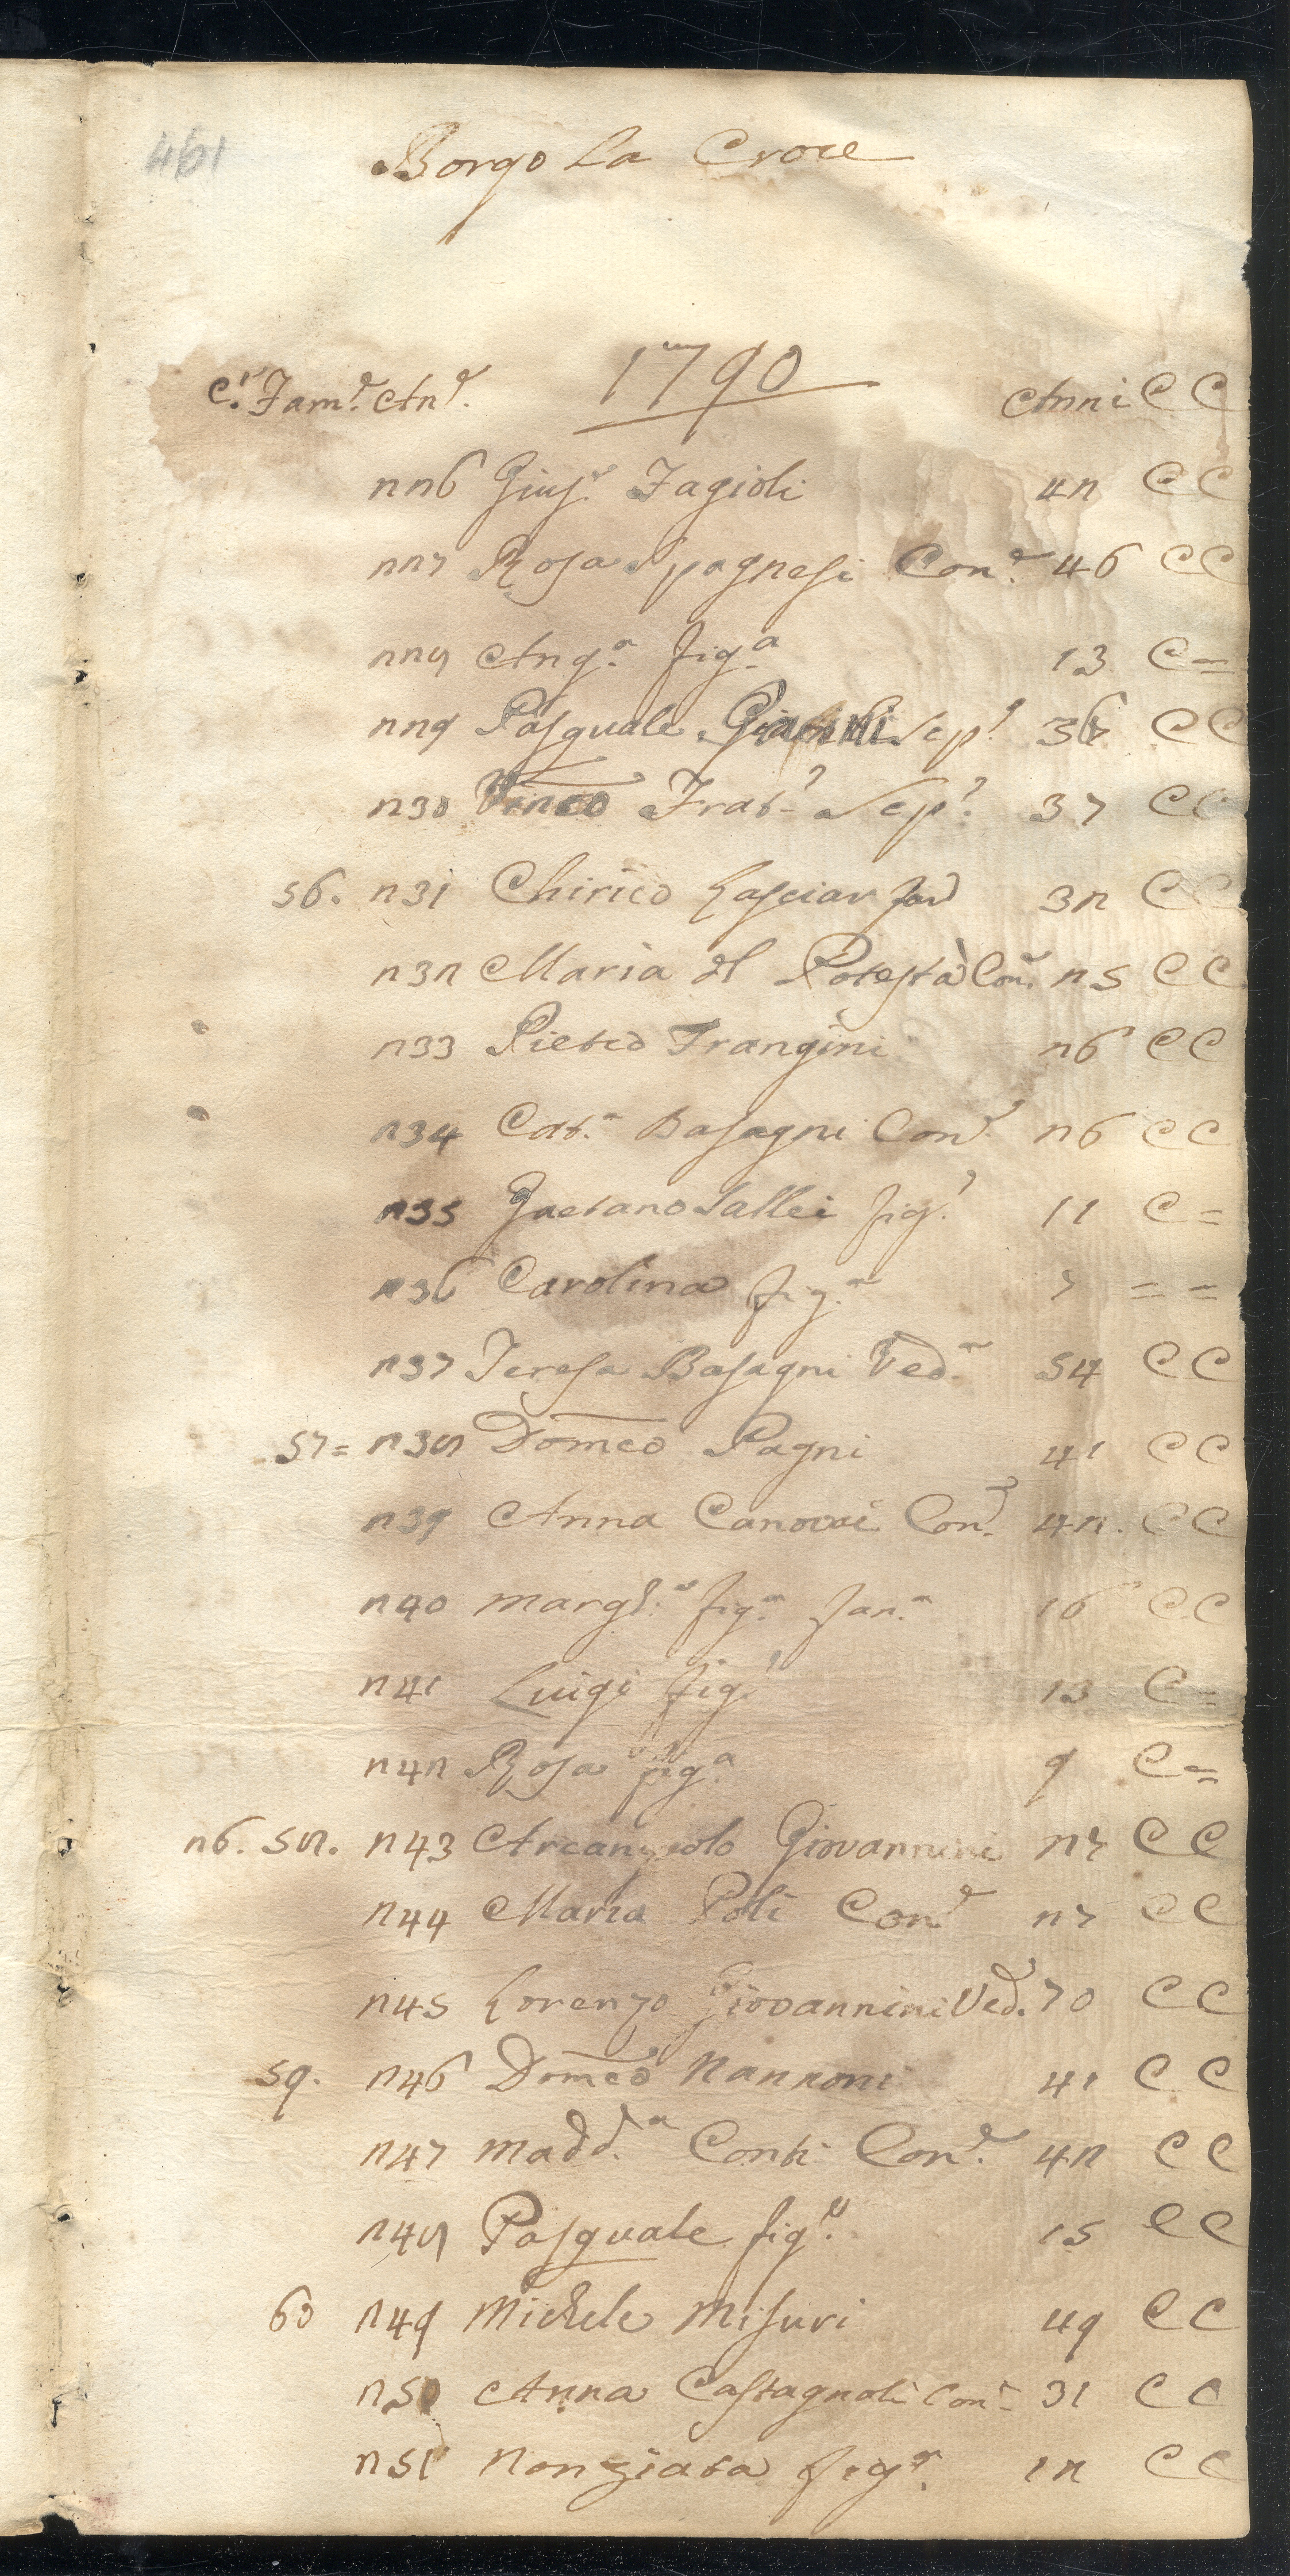 461
Borgo La Croce
1790
C.e Fam.e An.e Anni C C
226 Gius.e Fagioli 42 C C
227 Rosa Spagnesi Con.e 46 C C
228 Ang.a fig.a 13 C =
229 Pasquale Sep.e C C
230 Vinco Frat.o Sep.e 37 C C
56. 231 Chirico Lasciar 32 C C
232 Maria del Potestà Con.e 25 C C
233 Pietro Frangini 26 C C
234 Cat.a Basagni Con.e 26 C C
235 Gaetano Vallei fig.o 11 C =
236 Carolina fig.a 7 = =
237 Teresa Basagni Ved.a 54 C C
57 = 238 Domco Pagni 41 C C
239 Anna Canovai Con.e 42. C C
240 Marg.ta fig.a fan.a 16 C C
241 Luigi fig.o 13 C =
242 Rosa fig.a 9 C =
26. 58. 243 Arcangiolo Giovannini 27 C C
244 Maria Poli Con.e 27 C C
245 Lorenzo Giovannini Ved.o 70 C C
59. 246 Domco Nannoni 41 C C
247 Madd.a Conti Con.e 42 C C
248 Pasquale fig.o 15 C C
60 249 Michele Misuri 49 C C
250 Anna Castagnoli Con.e 31 C C
251 Nonziata fig.a 12 C C